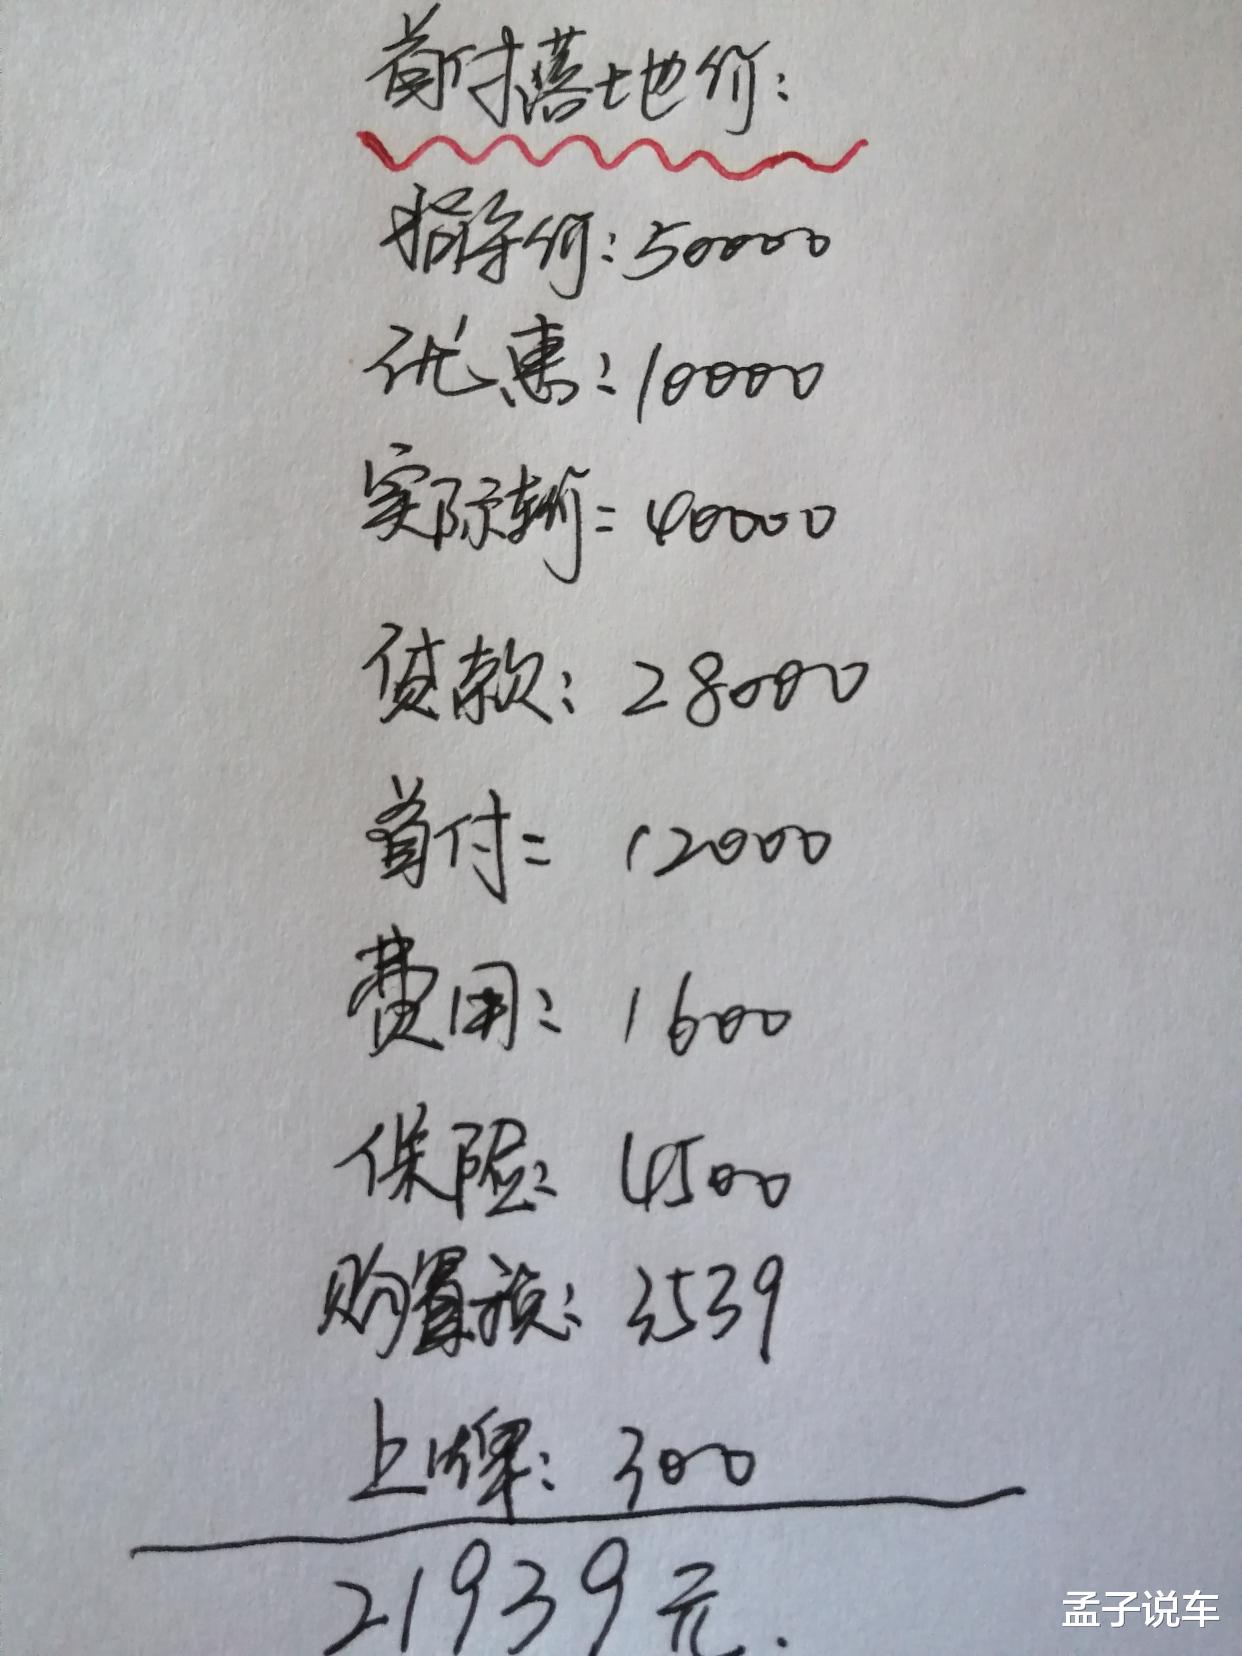 首付落地价:
指导价:50000
优惠:10000
实际车价=40000
贷款:28000
首付= 12000
费用: 1600
保险: 4500
购置税: 3539
上牌: 300
21939元.
孟子说车